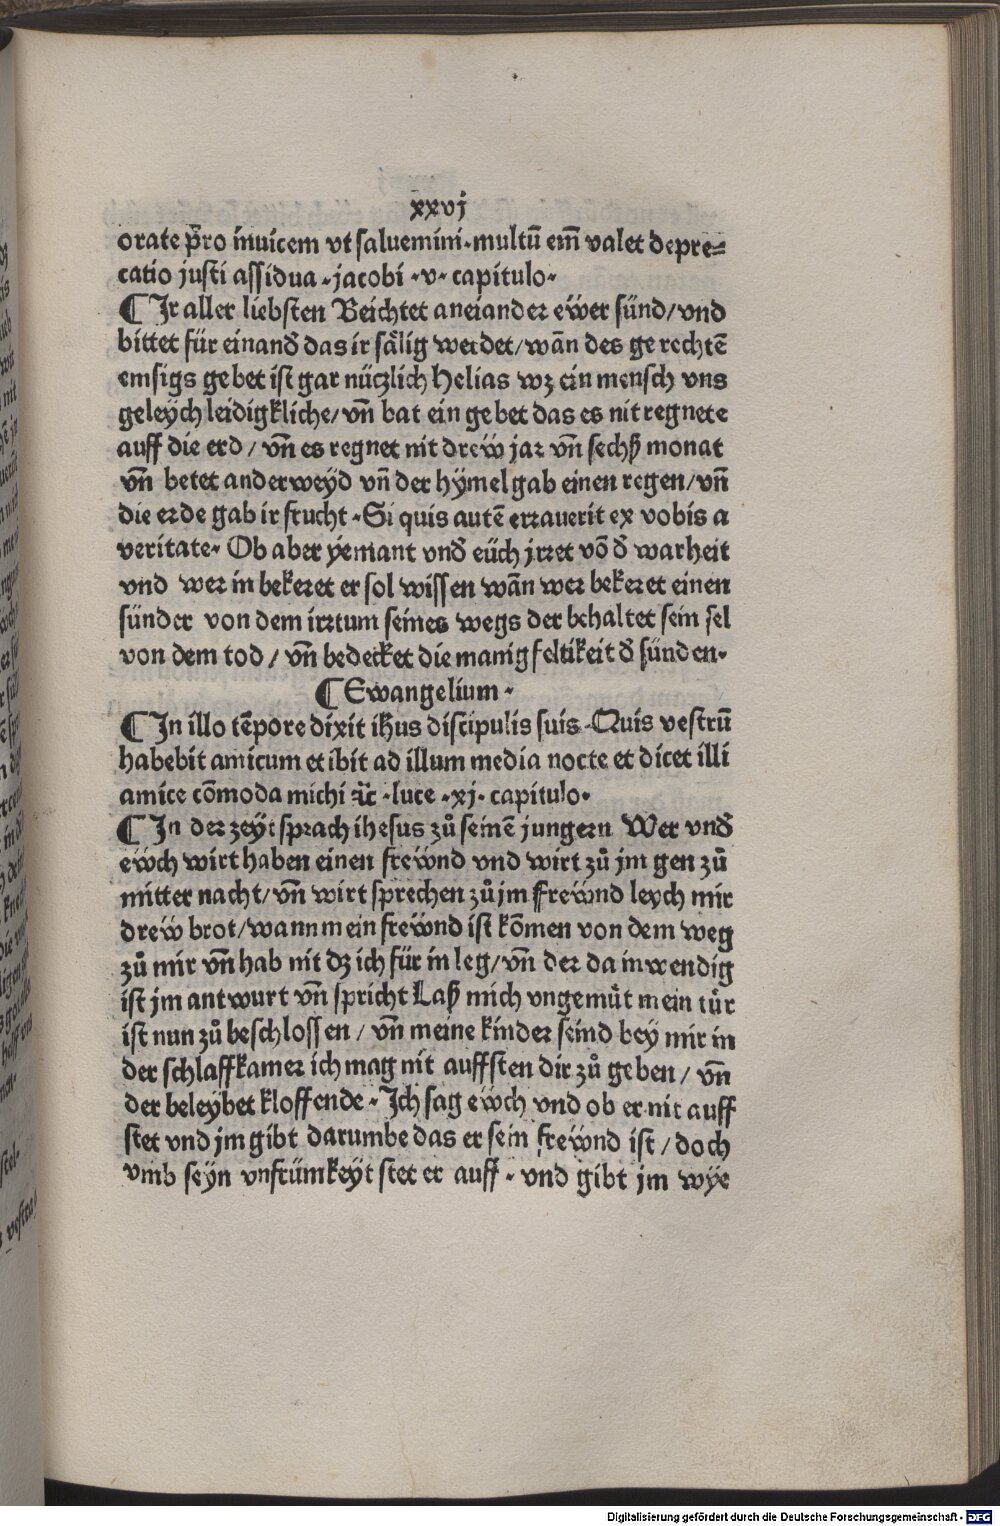 xxvj
orate p̄ro inuicem vt saluemini·multū em̄ valet depre⸗
catio justi assidua·jacobi·v·capitulo·
¶ Ir aller liebsten Beichtet aneiander eẅer sünd/vnd
bittet für einand̄ das ir sälig werdet/wān des gerechtē
emsigs gebet ist gar nüczlich Helias wz ein mensch vns
geleych leidigkliche/vn̄ bat ein gebet das es nit regnete
auff die erd/vn̄ es regnet nit dreẅ jar vn̄ sechß monat
vn̄ betet anderweyd vn̄ der hÿmel gab einen regen/vn̄
die erde gab ir frucht·Si quis autē errauerit ex vobis a
veritate·Ob aber ÿemant vnd̄ eüch jrret vō d̄ warheit
vnd wer in bekeret er sol wissen wān wer bekeret einen
sünder von dem irrtum seines wegs der behaltet sein sel
von dem tod/vn̄ bedecket die manigfeltikeit d̄ sünden·
¶ Ewangelium·
¶ In illo tēpore dixit ih̄us discipulis suis·Quis vestrū
habebit amicum et ibit ad illum media nocte et dicet illi
amice cōmoda michi ꝛc̄·luce·xj·capitulo·
¶ In der zeyt sprach ihesus zů seinē jungern Wer vnd̄
eẅch wirt haben einen freẅnd vnd wirt zů jm gen zů
mitter nacht/vn̄ wirt sprechen zů jm Freẅnd leych mir
dreẅ brot/wann mein freẅnd ist kōmen von dem weg
zů mir vn̄ hab nit dz ich für in leg/vn̄ der da inwendig
ist jm antwurt vn̄ spricht Laß mich vngemüt mein tür
ist nun zů beschlossen/vn̄ meine kinder seind bey mir in
der schlaffkamer ich mag nit auffsten dir zů geben/vn̄
der beleybet kloffende·Ich sag eẅch vnd ob er nit auff
stet vnd jm gibt darumbe das er sein freẅnd ist/doch
vmb seyn vnfrümkeÿt stet er auff·vnd gibt jm wÿe
Digitalisierung gefördert durch die Deutsche Forschungsgemeinschaft - DFG